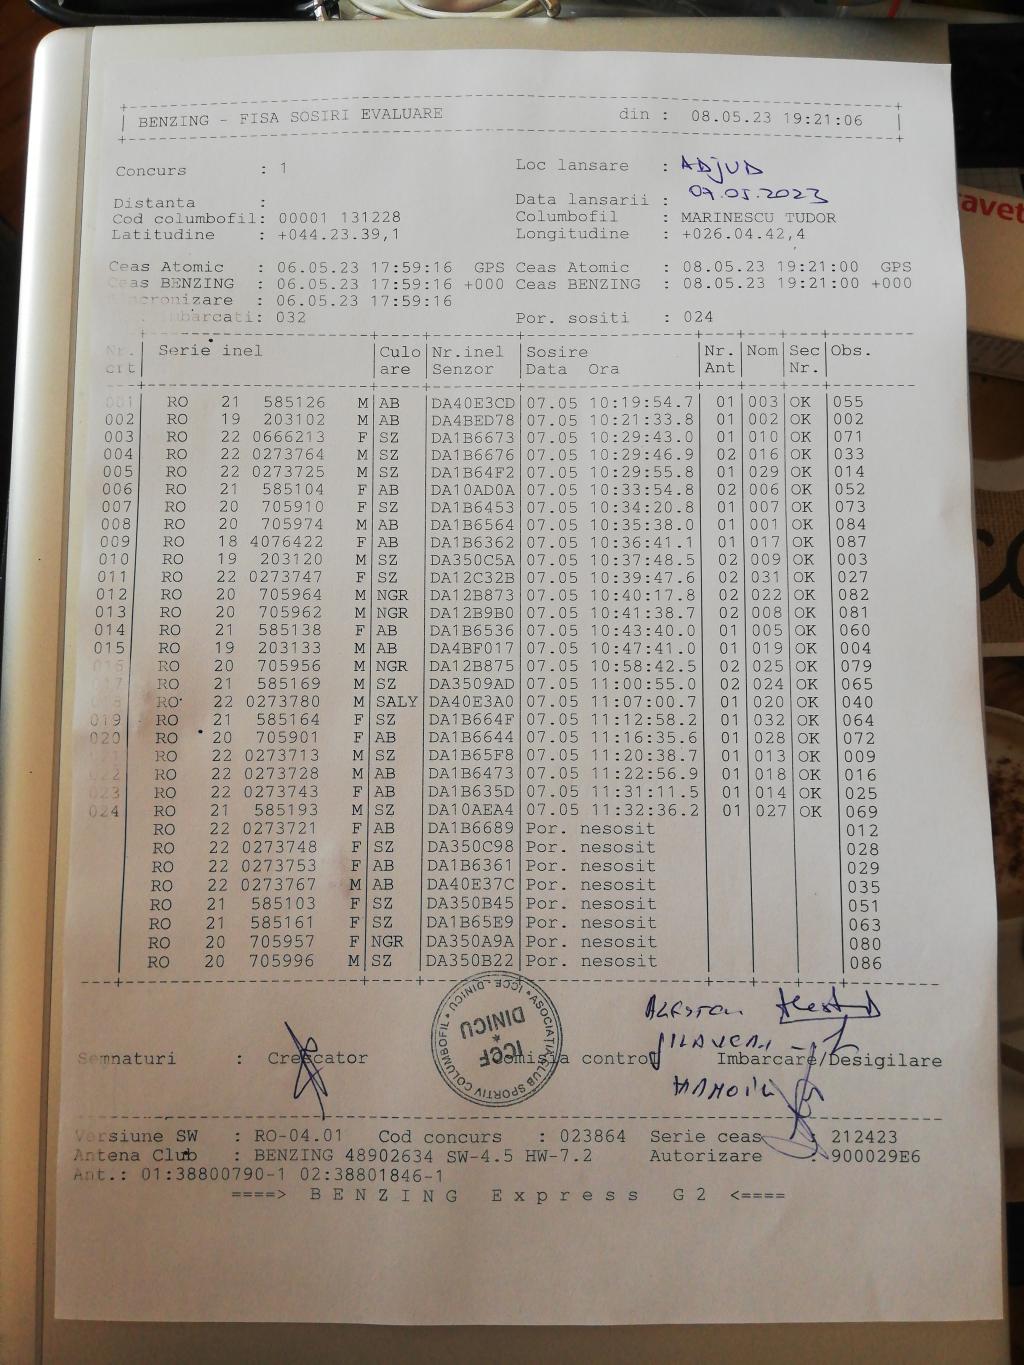 BENZING - FISA SOSIRI EVALUARE din : 08.05.23 19:21:06
Concurs : 1 Loc lansare : ADJUD
Distanta : Data lansarii : 07.05.2023
Cod columbofil: 00001 131228 Columbofil : MARINESCU TUDOR
Latitudine : +044.23.39,1 Longitudine : +026.04.42,4
Ceas Atomic : 06.05.23 17:59:16 GPS Ceas Atomic : 08.05.23 19:21:00 GPS
Ceas BENZING : 06.05.23 17:59:16 +000 Ceas BENZING : 08.05.23 19:21:00 +000
Sincronizare : 06.05.23 17:59:16
imbarcati: 032 Por. sositi : 024
Nr. Serie inel Culo Nr.inel Sosire Nr. Nom Sec Obs.
crt are Senzor Data Ora Ant Nr.
001 RO 21 585126 M AB DA40E3CD 07.05 10:19:54.7 01 003 OK 055
002 RO 19 203102 M AB DA4BED78 07.05 10:21:33.8 01 002 OK 002
003 RO 22 0666213 F SZ DA1B6673 07.05 10:29:43.0 01 010 OK 071
004 RO 22 0273764 M SZ DA1B6676 07.05 10:29:46.9 02 016 OK 033
005 RO 22 0273725 M SZ DA1B64F2 07.05 10:29:55.8 01 029 OK 014
006 RO 21 585104 F AB DA10AD0A 07.05 10:33:54.8 02 006 OK 052
007 RO 20 705910 F SZ DA1B6453 07.05 10:34:20.8 01 007 OK 073
008 RO 20 705974 M AB DA1B6564 07.05 10:35:38.0 01 001 OK 084
009 RO 18 4076422 F AB DA1B6362 07.05 10:36:41.1 01 017 OK 087
010 RO 19 203120 M SZ DA350C5A 07.05 10:37:48.5 02 009 OK 003
011 RO 22 0273747 F SZ DA12C32B 07.05 10:39:47.6 02 031 OK 027
012 RO 20 705964 M NGR DA12B873 07.05 10:40:17.8 02 022 OK 082
013 RO 20 705962 M NGR DA12B9B0 07.05 10:41:38.7 02 008 OK 081
014 RO 21 585138 F AB DA1B6536 07.05 10:43:40.0 01 005 OK 060
015 RO 19 203133 M AB DA4BF017 07.05 10:47:41.0 01 019 OK 004
016 RO 20 705956 M NGR DA12B875 07.05 10:58:42.5 02 025 OK 079
017 RO 21 585169 M SZ DA3509AD 07.05 11:00:55.0 02 024 OK 065
RO 22 0273780 M SALY DA40E3A0 07.05 11:07:00.7 01 020 OK 040
019 RO 21 585164 F SZ DA1B664F 07.05 11:12:58.2 01 032 OK 064
020 RO 20 705901 F AB DA1B6644 07.05 11:16:35.6 01 028 OK 072
RO 22 0273713 M SZ DA1B65F8 07.05 11:20:38.7 01 013 OK 009
022 RO 22 0273728 M AB DA1B6473 07.05 11:22:56.9 01 018 OK 016
023 RO 22 0273743 F AB DA1B635D 07.05 11:31:11.5 01 014 OK 025
024 RO 21 585193 M SZ DA10AEA4 07.05 11:32:36.2 01 027 OK 069
RO 22 0273721 F AB DA1B6689 Por. nesosit 012
RO 22 0273748 F SZ DA350C98 Por. nesosit 028
RO 22 0273753 F AB DA1B6361 Por. nesosit 029
RO 22 0273767 M AB DA40E37C Por. nesosit 035
RO 21 585103 F SZ DA350B45 Por. nesosit 051
RO 21 585161 F SZ DA1B65E9 Por. nesosit 063
RO 20 705957 F NGR DA350A9A Por. nesosit 080
RO 20 705996 M SZ DA350B22 Por. nesosit 086
ASOCIATIA CLUB SPORTIV COLUMBOFIL ICCF - DINICU
ICCF
DINICU
Semnaturi : Crescator Comisia control Imbarcare/Desigilare
Versiune SW : RO-04.01 Cod concurs : 023864 Serie ceas : 212423
Antena Club : BENZING 48902634 SW-4.5 HW-7.2 Autorizare : 900029E6
Ant.: 01:38800790-1 02:38801846-1
====> BENZING Express G2 <====